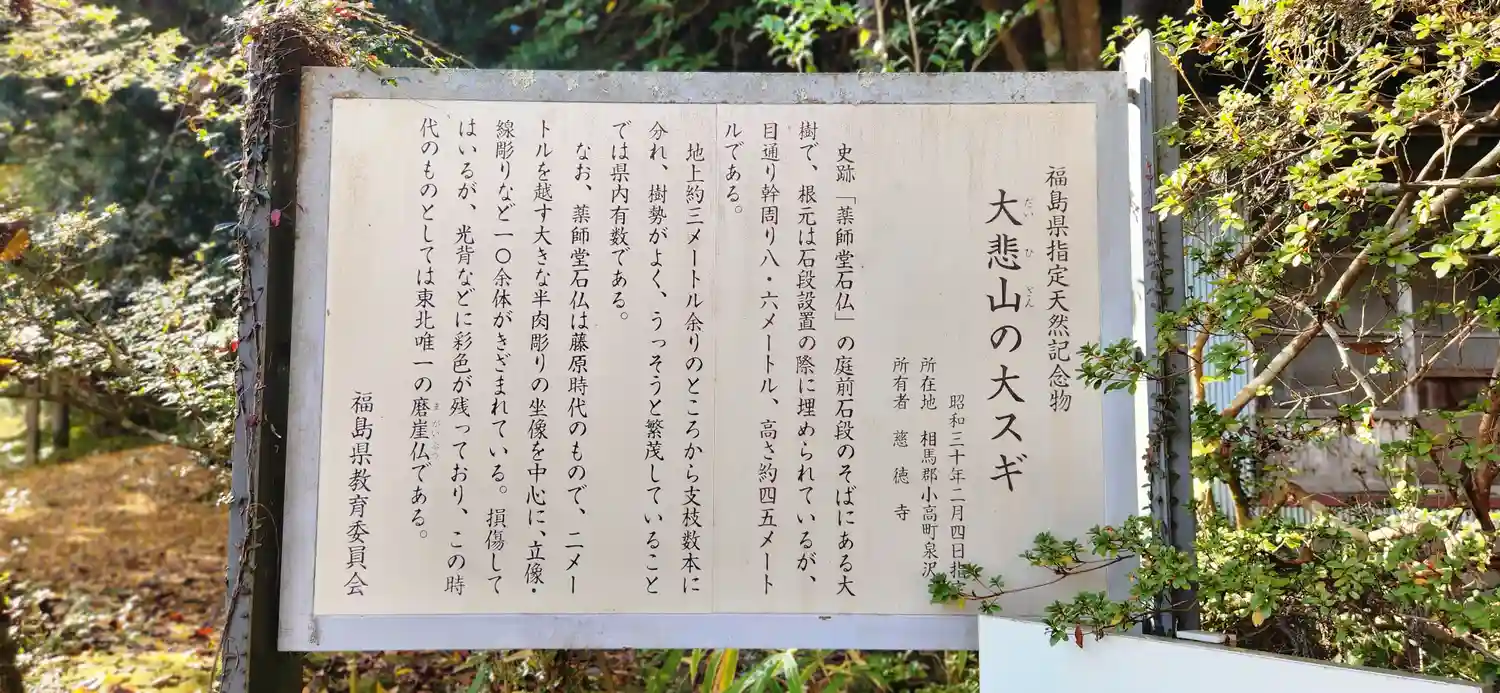 福島県指定天然記念物
大悲山の大スギ
だいひさん
昭和三十年二月四日指定
所在地 相馬郡小高町泉沢
所有者 慈徳寺
史跡「薬師堂石仏」の庭前石段のそばにある大
樹で、根元は石段設置の際に埋められているが、
目通り幹周り八・六メートル、高さ約四五メート
ルである。
地上約三メートル余りのところから支枝数本に
分れ、樹勢がよく、うっそうと繁茂していること
では県内有数である。
なお、薬師堂石仏は藤原時代のもので、二メー
トルを越す大きな半肉彫りの坐像を中心に、立像・
線彫りなど一〇余体がきざまれている。損傷して
はいるが、光背などに彩色が残っており、この時
代のものとしては東北唯一の磨崖仏である。
まがいぶつ
福島県教育委員会